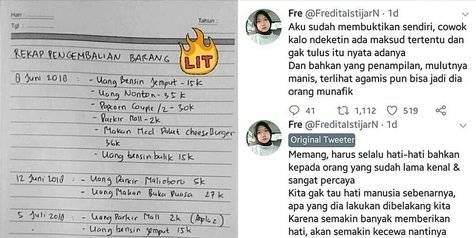 No.
Date
Tgl
Tahun :
REKAP PENGEMBALIAN BARANG
LIT
8 Juni 2018 : - Uang Bensin Jemput - 15k
- Uang Nonton - 35k
- Popcorn Couple /2 - 30k
- Parkir Mall - 2k
- Makan Mcd Paket Cheese Burger
36k
- Uang bensin balik 15k
12 Juni 2018 : - Uang Parkir Malioboro 5k
- Uang Makan Buka Puasa 27k
5 Juli 2018 : - Uang Parkir Mall 2k
- Uang bensin jemput 15k
Fre @FreditaIstijarN · 1d
Aku sudah membuktikan sendiri, cowok
kalo ndeketin ada maksud tertentu dan
gak tulus itu nyata adanya
Dan bahkan yang penampilan, mulutnya
manis, terlihat agamis pun bisa jadi dia
orang munafik
41 1,112 519
Fre @FreditaIstijarN · 1d
Original Tweeter
Memang, harus selalu hati-hati bahkan
kepada orang yang sudah lama kenal &
sangat percaya
Kita gak tau hati manusia sebenarnya,
apa yang dia lakukan dibelakang kita
Karena semakin banyak memberikan
hati, akan semakin kecewa nantinya